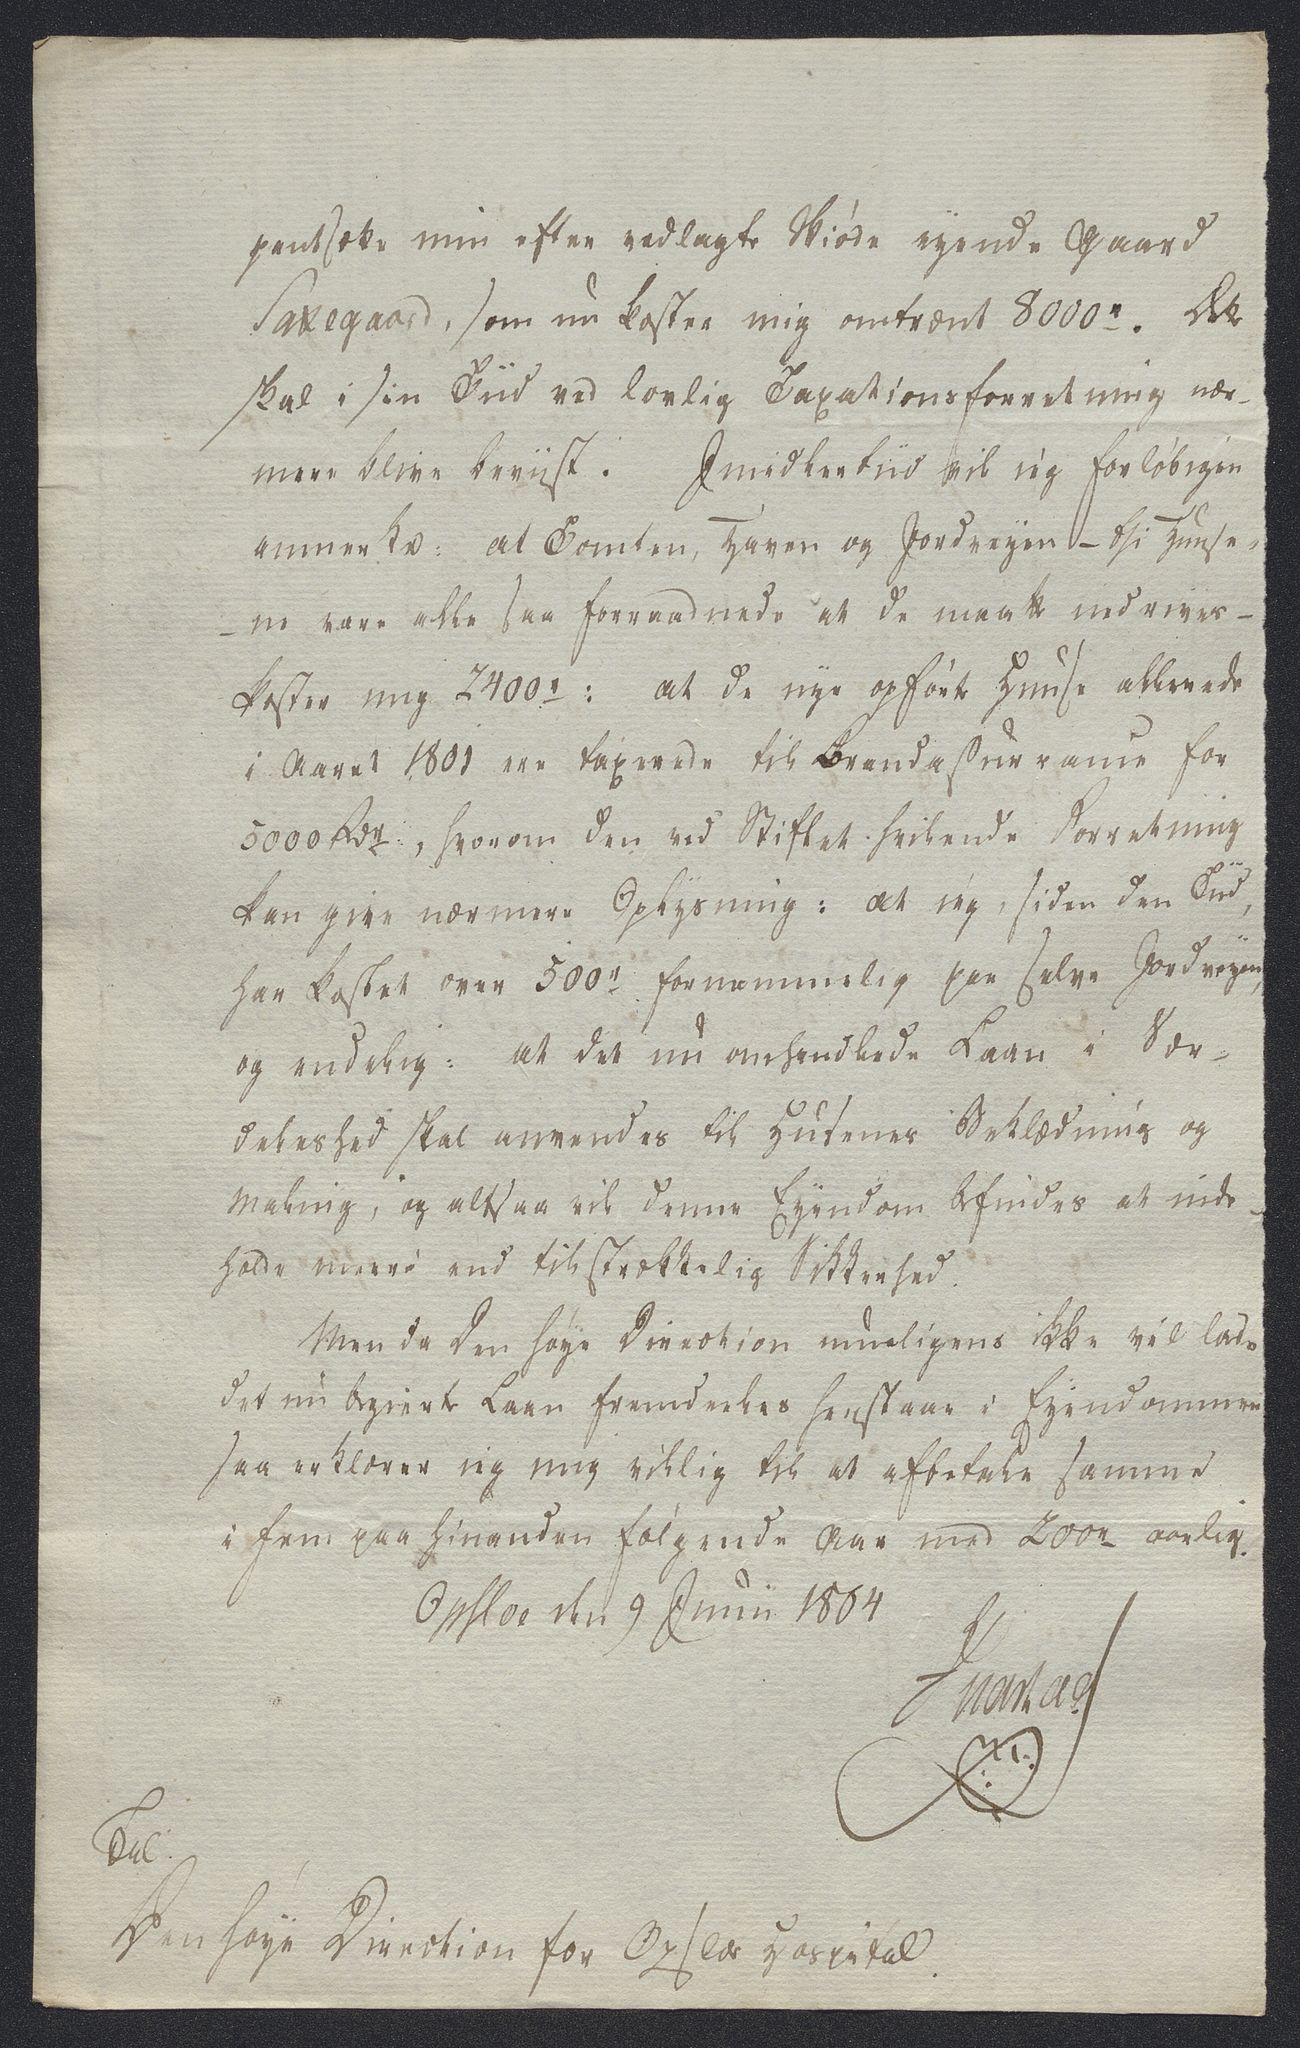 pantsætte min efter vedlagte Skiöde eyende Gaard
Saxegaard, som nu koster mig omtrænt 8000 r. Dette
skal i sin Tiid ved lovlig Taxationsforretning nær-
mere blive beviist. Imidlertiid vil ieg forlöbigen
anmerke: at Tomten, Haven og Jordveyen – thi Huuse-
-ne vare alle saa forraadnede at de maatte nedrives –
koster mig 2400 r: at de nye opförte Huuse allerede
i Aaret 1801 ere taxerede til Brandassurrance for
5000 Rdr, hvorom den ved Stiftet hvilende Forretning
kan give nærmere Oplysning: at ieg, siden den Tiid,
har kostet over 500 r fornemmelig paa selve Jordveyen,
og endelig: at det nu omhandlede Laan i Sær-
deleshed skal anvendes til Husenes Beklædning og
Maling, og altsaa vil denne Eyendom befindes at inde-
holde meere end tilstrækkelig Sikkerhed.
Men da Den höye Direction mueligens ikke vil lade
det nu begierte Laan fremdeeles henstaae i Eyendommen
saa erklærer ieg mig villig til at afbetale samme
i fem paa hinanden fölgende Aar med 200 r aarlig.
Opsloe den 9 Junii 1804
Til
Den höye Direction for Opsloe Hospital.